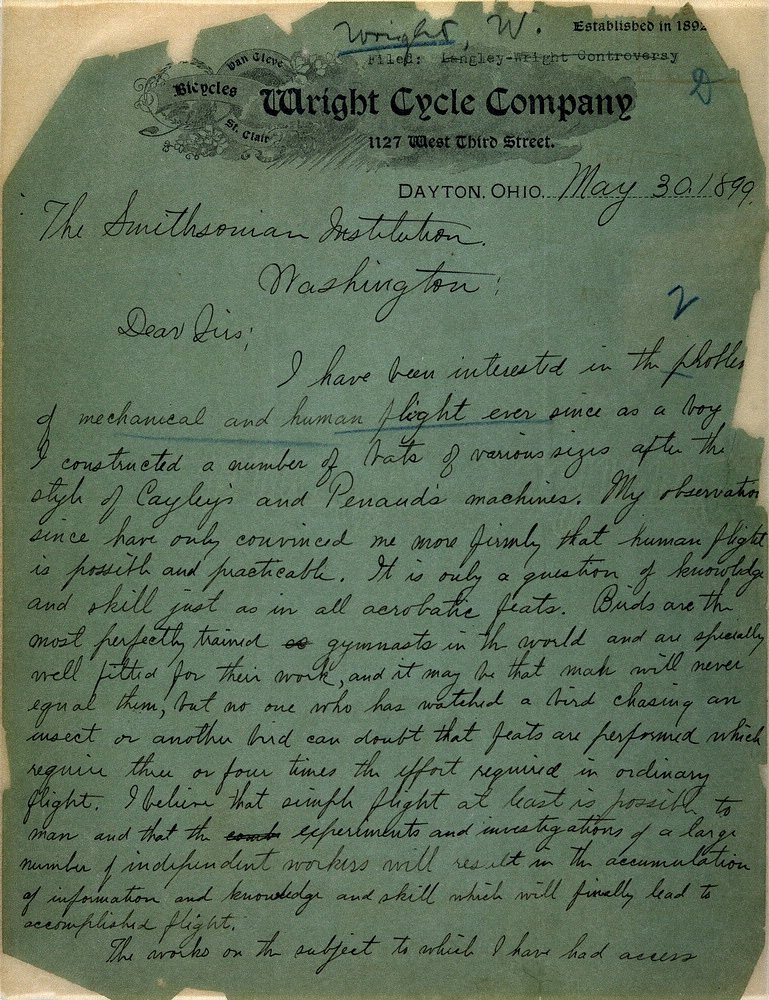 Wright, W.
Established in 1892
Filed: Langley-Wright Controversy
D
Van Cleve
Bicycles
St. Clair
Wright Cycle Company
1127 West Third Street.
DAYTON, OHIO. May 30, 1899.
The Smithsonian Institution.
Washington;
2
Dear Sirs;
I have been interested in the problem
of mechanical and human flight ever since as a boy
I constructed a number of bats of various sizes after the
style of Cayley's and Penaud's machines. My observations
since have only convinced me more firmly that human flight
is possible and practicable. It is only a question of knowledge
and skill just as in all acrobatic feats. Birds are the
most perfectly trained gymnasts in the world and are specially
well fitted for their work, and it may be that man will never
equal them, but no one who has watched a bird chasing an
insect or another bird can doubt that feats are performed which
require three or four times the effort required in ordinary
flight. I believe that simple flight at least is possible to
man and that the experiments and investigations of a large
number of independent workers will result in the accumulation
of information and knowledge and skill which will finally lead to
accomplished flight.
The works on the subject to which I have had access